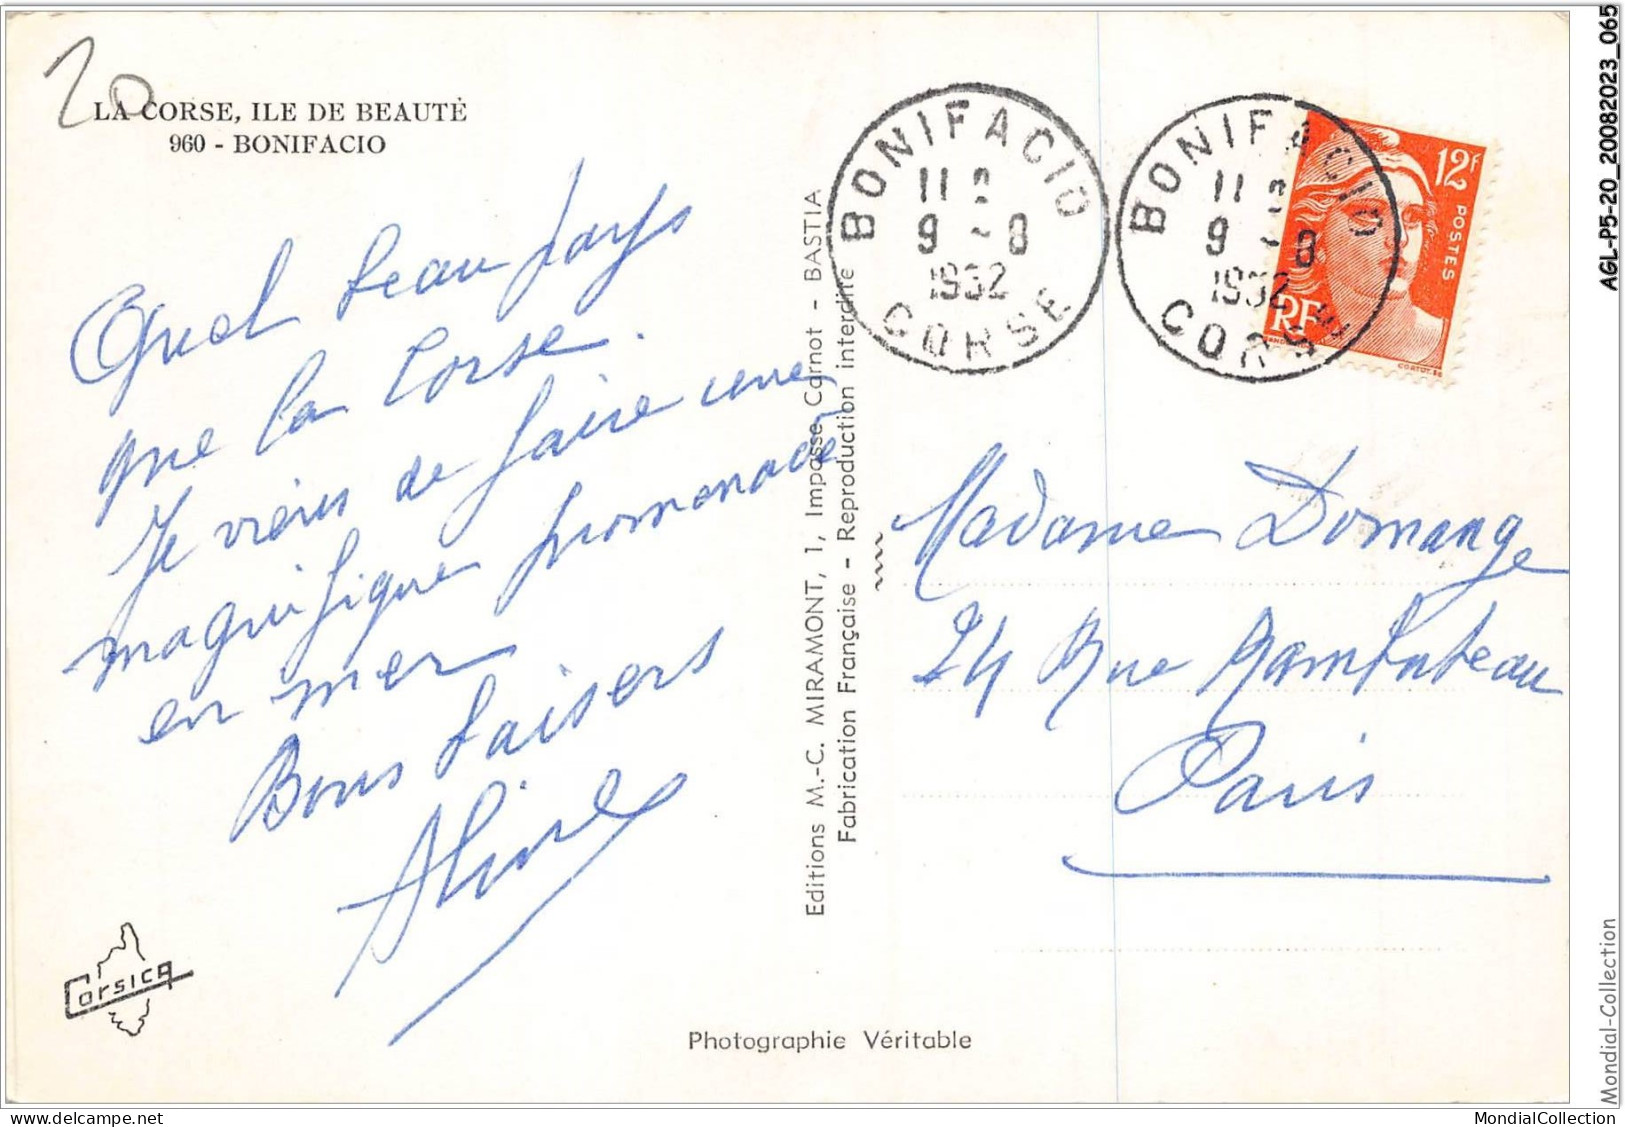 20
LA CORSE, ILE DE BEAUTÉ
960 - BONIFACIO
Quel beau pays
que la Corse.
Je viens de faire une
magnifique promenade
en mer
Bons baisers
Aline
Corsica
Editions M.-C. MIRAMONT, 1, Impasse Carnot - BASTIA
Fabrication Française - Reproduction interdite
Photographie Véritable
BONIFACIO
11
9 - 8
1952
CORSE
BONIFACIO
11
9 - 8
1952
CORSE
12F
POSTES
RF
Madame Domange
24 Rue Rambuteau
Paris
AGL-P5-20_20082023_065
Mondial-Collection
MondialCollection